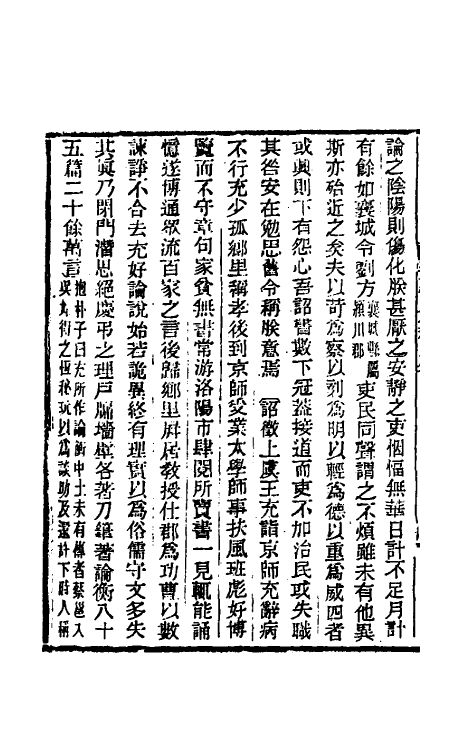 論之陰陽則傷化朕甚厭之安靜之吏悃愊無華日計不足月計
有餘如襄城令劉方襄城縣屬潁川郡吏民同聲謂之不煩雖未有他異
斯亦殆近之矣夫以苛為察以刻為明以輕為德以重為威四者
或興則下有怨心吾詔書數下冠蓋接道而吏不加治民或失職
其咎安在勉思舊令稱朕意焉 詔徵上虞王充詣京師充辭病
不行充少孤鄉里稱孝後到京師受業太學師事扶風班彪好博
覽而不守章句家貧無書常游洛陽市肆閱所賣書一見輒能誦
憶遂博通眾流百家之言後歸鄉里屏居教授仕郡為功曹以數
諫諍不合去充好論說始若詭異終有理實以為俗儒守文多失
其真乃閉門潛思絕慶弔之理戶牖墻壁各著刀筆著論衡八十
五篇二十餘萬言抱朴子曰充所作論衡中土未有傳者蔡邕入吳始得之恆秘玩以為談助及還許下時人稱